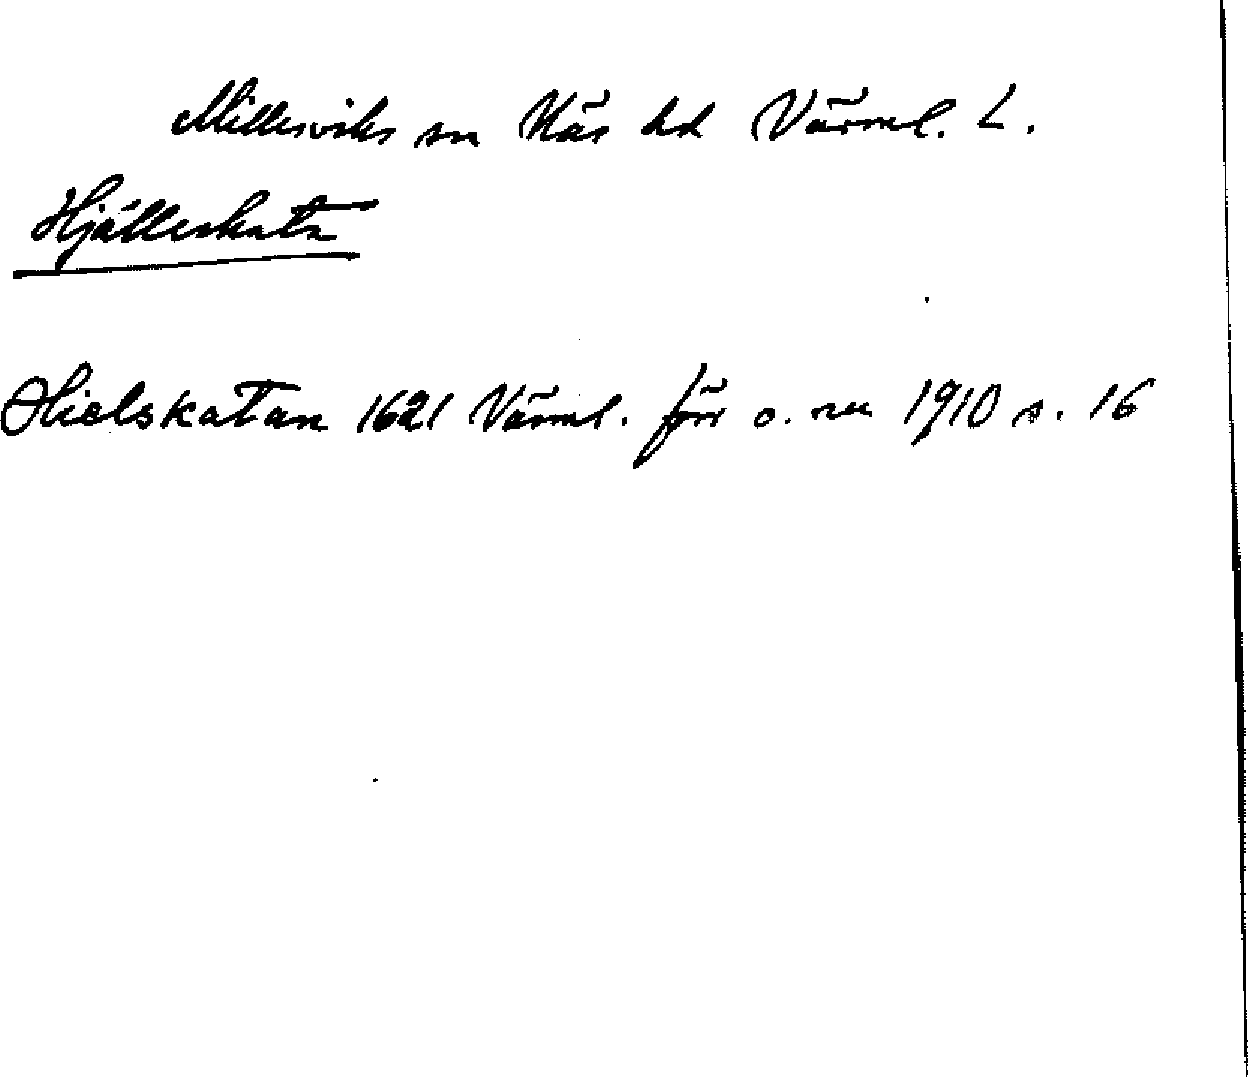 Millesviks sn Näs hd Värml. L.
Hjälleskata
Hielskatan 1621 Värml. förr o. nu 1910 s. 16